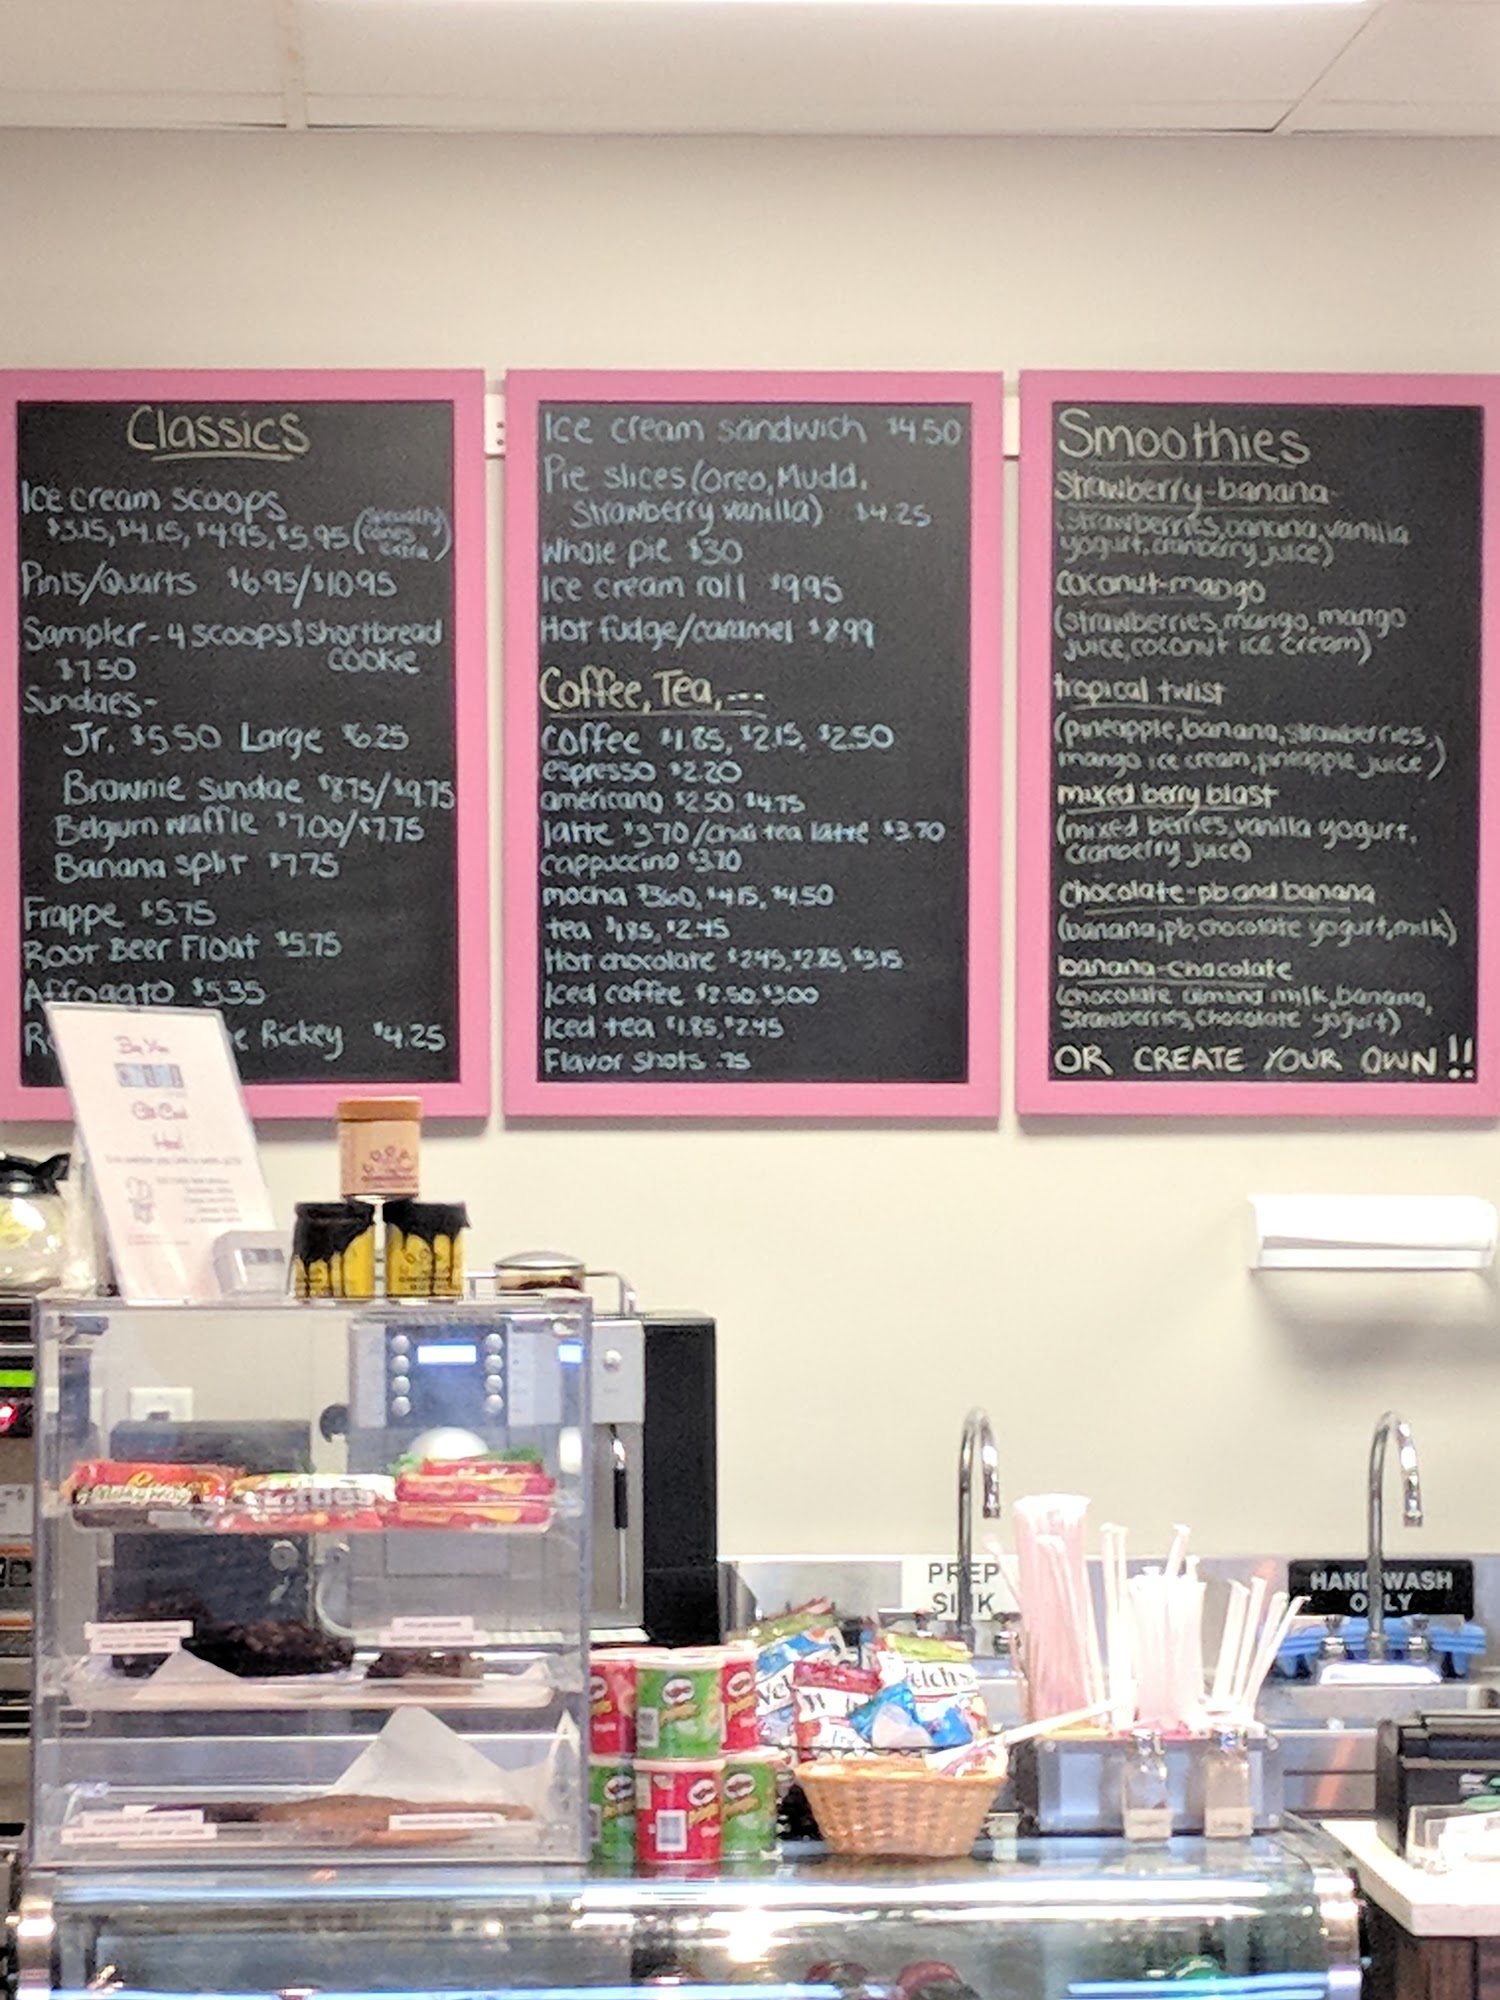 Classics
Ice cream scoops
$3.15, $4.15, $4.95, $5.95 (specialty
cones
extra)
Pints/Quarts $6.95/$10.95
Sampler - 4 scoops & shortbread
$7.50 cookie
Sundaes-
Jr. $5.50 Large $6.25
Brownie sundae $8.75/$9.75
Belgium waffle $7.00/$7.75
Banana split $7.75
Frappe $5.75
Root Beer Float $5.75
Affogato $5.35
Rickey $4.25
Ice cream sandwich $4.50
Pie slices (Oreo, Mudd,
Strawberry vanilla) $4.25
Whole pie $30
Ice cream roll $9.95
Hot fudge/caramel $2.99
Coffee, Tea, ---
Coffee $1.85, $2.15, $2.50
espresso $2.20
americano $2.50 $4.75
latte $3.70/chai tea latte $3.70
cappuccino $3.70
mocha $3.60, $4.15, $4.50
tea $1.85, $2.45
Hot chocolate $2.45, $2.85, $3.15
Iced coffee $2.50, $3.00
Iced tea $1.85, $2.45
Flavor shots .75
Smoothies
Strawberry-banana-
(strawberries, banana, vanilla
yogurt, cranberry juice)
coconut-mango
(strawberries, mango, mango
juice, coconut ice cream)
tropical twist
(pineapple, banana, strawberries,
mango ice cream, pineapple juice)
mixed berry blast
(mixed berries, vanilla yogurt,
cranberry juice)
Chocolate-pb and banana
(banana, pb, chocolate yogurt, milk)
banana-chocolate
(chocolate almond milk, banana,
Strawberries, chocolate yogurt)
OR CREATE YOUR OWN!!
PREP
SINK
HAND WASH
ONLY
Welch's